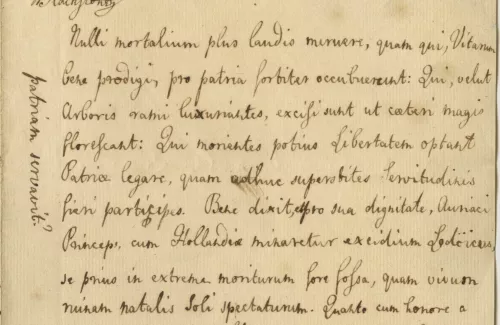 Nulli mortalium plus laudis meruere, quam qui, Vitarum
bene prodigi, pro patria fortiter occubuerunt: Qui, velut
Arboris rami luxuriantes, excisi sunt ut cæteri magis
florescant: Qui morientes potius Libertatem optant
Patriæ legare, quam adhuc superstites Servitudinis
fieri participes. Bene dixit, pro sua dignitate, Auriaci
Princeps, cum Hollandiæ minaretur excidium
se prius in extrema moriturum fore fossa, quam vivum
ruinam natalis soli spectaturum. Quanto cum honore a
patriam servavit?